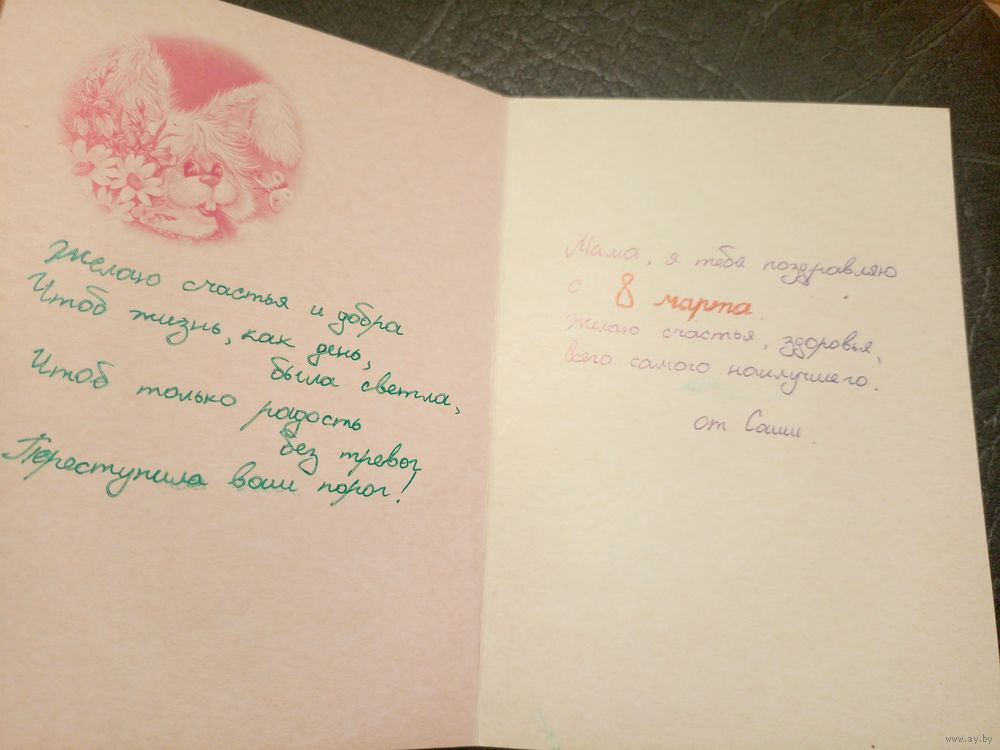 Желаю счастья и добра
Чтоб жизнь, как день,
была светла,
Чтоб только радость
без тревог
Переступила ваш порог!
Мама, я тебя поздравляю
с 8 марта.
Желаю счастья, здоровья,
всего самого наилучшего.
от Саши.
www.ay.by